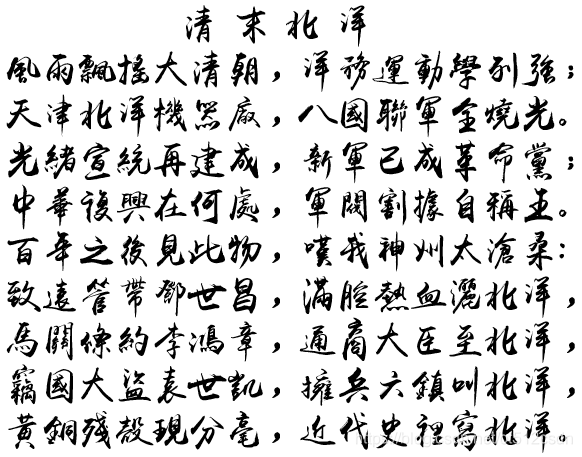 清末北洋
風雨飄搖大清朝，洋務運動學列強；
天津北洋機器廠，八國聯軍全燒光。
光緒宣統再建成，新軍已成革命黨；
中華復興在何處，軍閥割據自稱王。
百年之後見此物，嘆我神州太滄桑：
致遠管帶鄧世昌，滿腔熱血灑北洋，
馬關條約李鴻章，通商大臣至北洋，
竊國大盜袁世凱，擁兵六鎮叫北洋，
黃銅殘殼現分毫，近代史裡寫北洋。